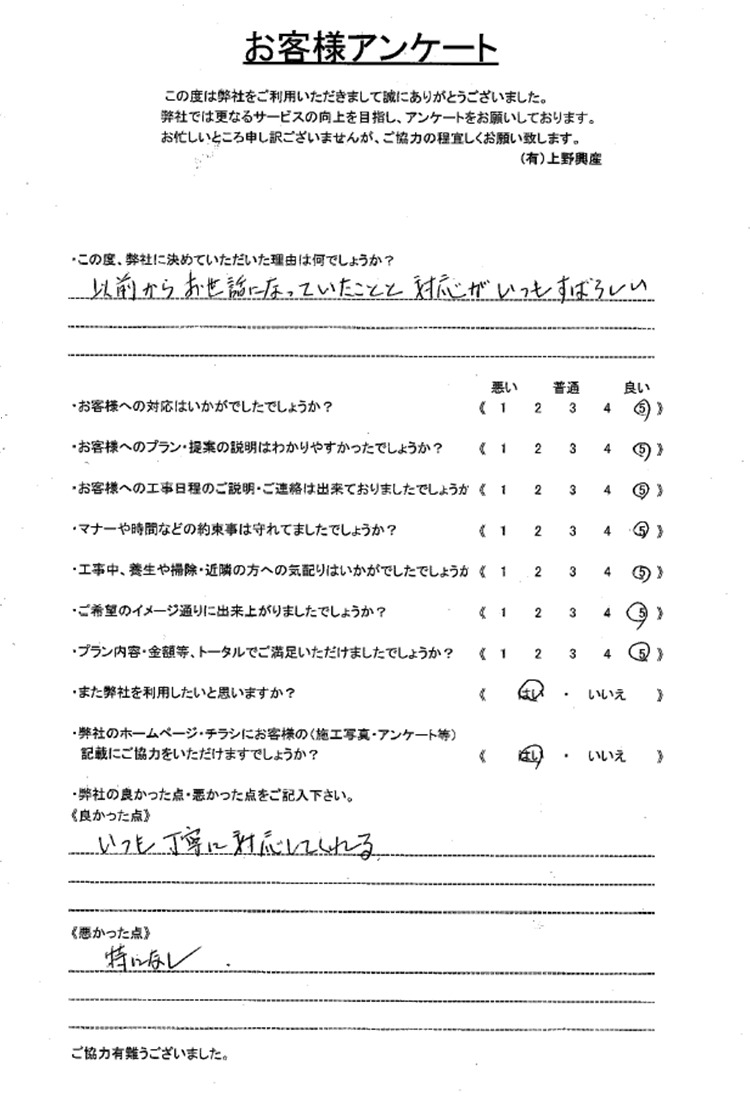 お客様アンケート
この度は弊社をご利用いただきまして誠にありがとうございました。
弊社では更なるサービスの向上を目指し、アンケートをお願いしております。
お忙しいところ申し訳ございませんが、ご協力の程宜しくお願い致します。
(有)上野興産
・この度、弊社に決めていただいた理由は何でしょうか?
以前からお世話になっていたことと対応がいつもすばらしい
悪い 普通 良い
・お客様への対応はいかがでしたでしょうか? 《 1 2 3 4 5 》
・お客様へのプラン・提案の説明はわかりやすかったでしょうか? 《 1 2 3 4 5 》
・お客様への工事日程のご説明・ご連絡は出来ておりましたでしょうか 《 1 2 3 4 5 》
・マナーや時間などの約束事は守れてましたでしょうか? 《 1 2 3 4 5 》
・工事中、養生や掃除・近隣の方への気配りはいかがでしたでしょうか 《 1 2 3 4 5 》
・ご希望のイメージ通りに出来上がりましたでしょうか? 《 1 2 3 4 5 》
・プラン内容・金額等、トータルでご満足いただけましたでしょうか? 《 1 2 3 4 5 》
・また弊社を利用したいと思いますか? 《 はい ・ いいえ 》
・弊社のホームページ・チラシにお客様の(施工写真・アンケート等)
記載にご協力をいただけますでしょうか? 《 はい ・ いいえ 》
・弊社の良かった点・悪かった点をご記入下さい。
《良かった点》
いつも丁寧に対応してくれる
《悪かった点》
特になし.
ご協力有難うございました。